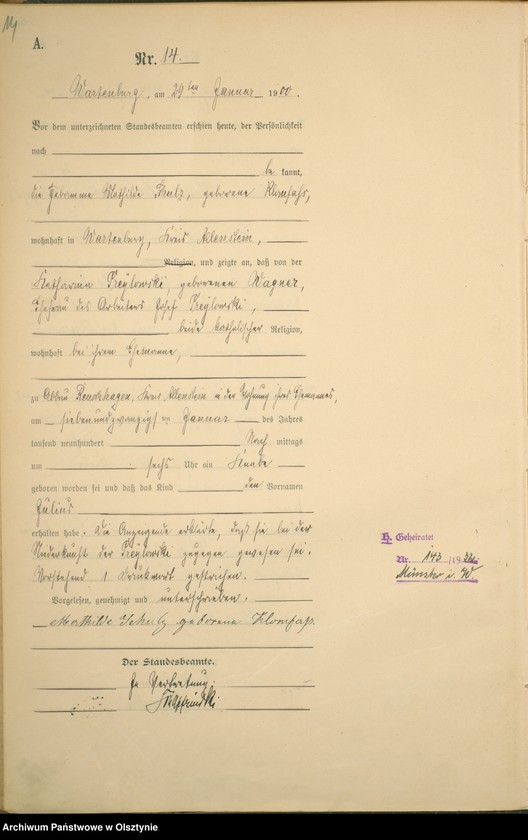 14
A.
Nr. 14.
Wartenburg, am 29ten Januar 1900.
Vor dem unterzeichneten Standesbeamten erschien heute, der Persönlichkeit
nach
be kannt,
die Hebamme Mathilde Schulz, geborene
wohnhaft in Wartenburg, Kreis Allenstein,
Religion, und zeigte an, daß von der
Katharina geborenen Wagner,
Ehefrau des Arbeiters Josef
beide katholischer Religion,
wohnhaft bei ihrem Ehemanne,
zu Abbau Kreis Allenstein in der Wohnung ihres Ehemannes,
am siebenundzwanzigsten Januar des Jahres
tausend neunhundert Nach mittags
um sechs Uhr ein Knabe
geboren worden sei und daß das Kind den Vornamen
Julius
erhalten habe. Die Anzeigende erklärte, daß sie bei der
Niederkunft der zugegen gewesen sei.
Vorstehend 1 Druckwort gestrichen.
Vorgelesen, genehmigt und unterschrieben.
Mathilde Schulz geborene
Der Standesbeamte.
In Vertretung.
H. Geheiratet
Nr. 143 /19
Münster i. W.
Archiwum Państwowe w Olsztynie